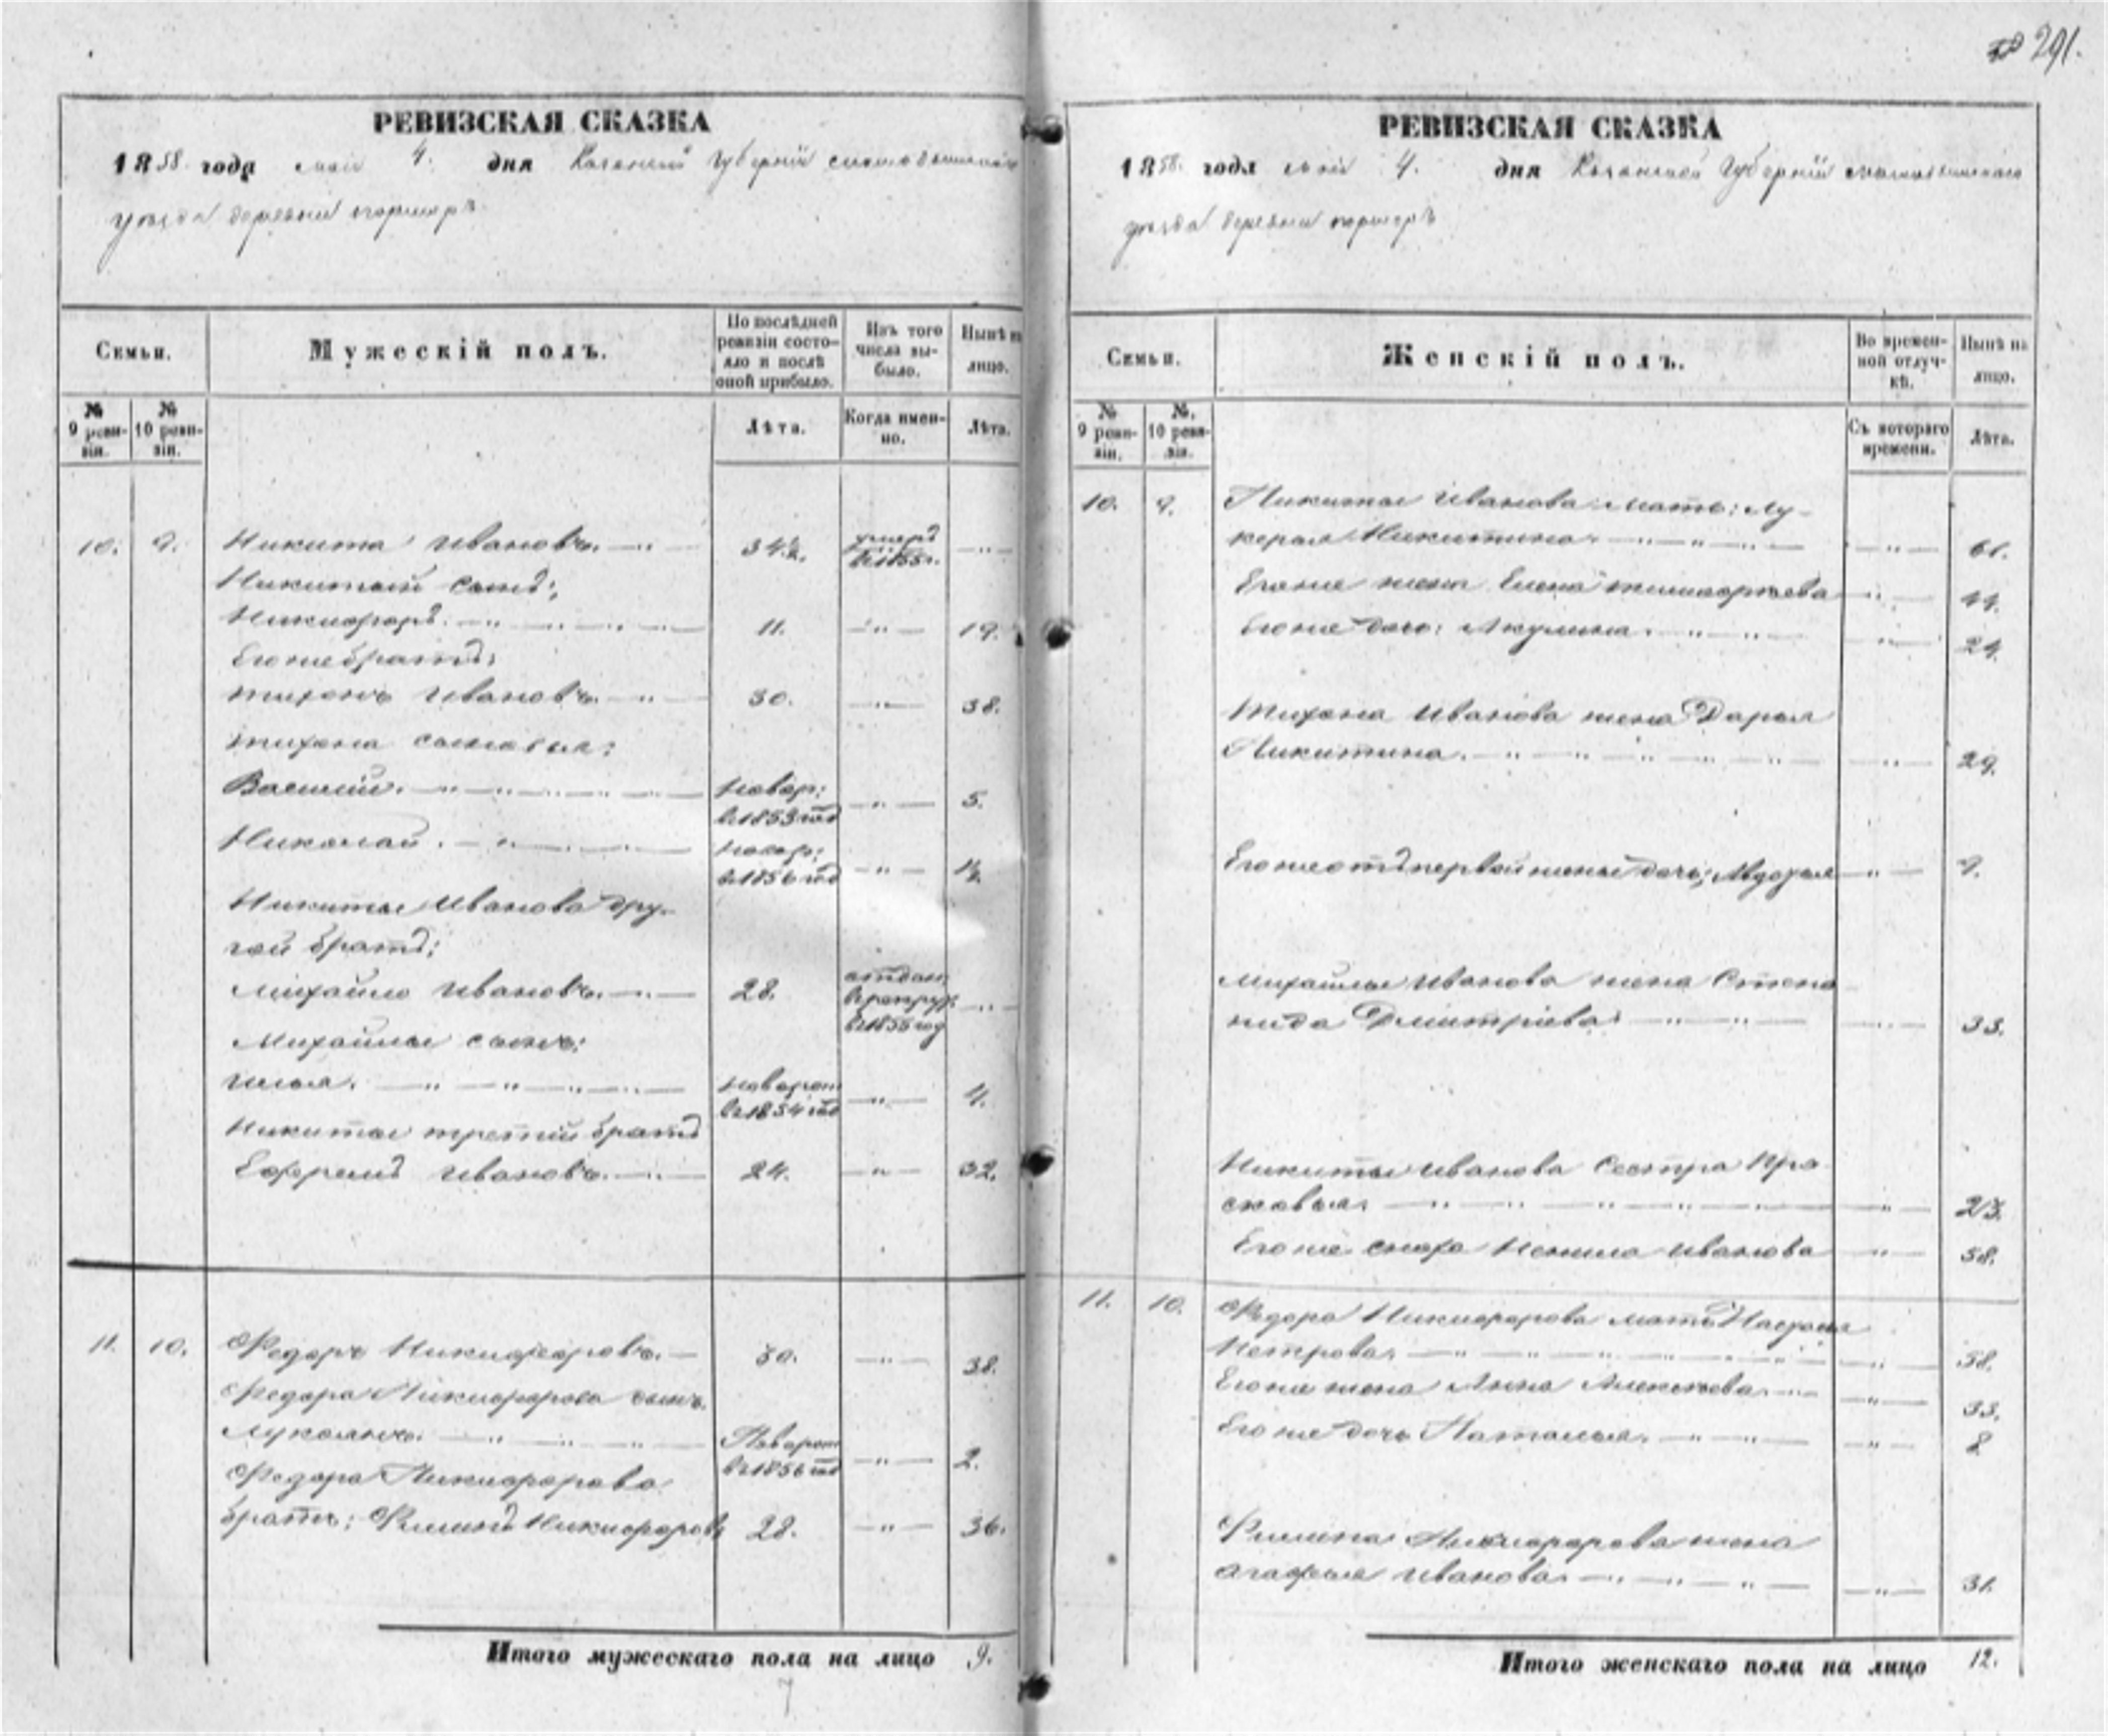 291.
РЕВИЗСКАЯ СКАЗКА
1858 года маія 4. дня Казанской Губерніи
уѣзда деревни
Семьи.
Мужескій полъ.
По послѣдней ревизіи состояло и послѣ оной прибыло.
Изъ того числа выбыло.
Нынѣ на лицо.
№ 9 ревизіи.
№ 10 ревизіи.
Лѣта.
Когда именно.
Лѣта.
10. 9. Никита Ивановъ. 34½. умеръ в 1855 г.
Никитый сынъ:
Никифоръ. 11. 19.
Его же братъ:
Тихонъ Ивановъ. 30. 38.
Тихона сыновья:
Василий. новор: в 1853 год 5.
Николай. новор: в 1856 год 1½.
Никиты Иванова дру-
гой братъ:
Михайло Ивановъ. 28. отдан в рекруты в 1855 год
Михайлы сынъ:
Илья. новорот в 1854 год 4.
Никиты третій братъ
Ефремъ Ивановъ. 24. 32.
11. 10. Федоръ Никифоровъ. 30. 38.
Федора Никифорова сынъ.
Лукоянъ. Новорот в 1856 год 2.
Федора Никифорова
братъ: Филипъ Никифоровъ 28. 36.
Итого мужескаго пола на лицо 9.
РЕВИЗСКАЯ СКАЗКА
1858 года маія 4. дня Казанской Губерніи
уѣзда деревни
Семьи.
Женскій полъ.
Во временной отлучкѣ.
Нынѣ на лицо.
№ 9 ревизіи.
№ 10 ревизіи.
Съ котораго времени.
Лѣта.
10. 9. Никиты Иванова мать: Лу-
керья Никитина 61.
Его же жена Елена Тимофѣева 44.
Его же дочь: Акулина. 24.
Тихона Иванова жена Дарья
Никитина. 29.
Его же отъ первой жены дочь: Авдотья 9.
Михайлы Иванова жена Степа
нида Дмитріева 33.
Никиты Иванова сестра Пра
сковья. 23.
Его же сноха Ненила Иванова 58.
11. 10. Федора Никифорова мать Настасья
Петрова. 58.
Его же жена Анна Алексѣева. 33.
Его же дочь Наталья. 8
Филипа Никифорова жена
Агафья Иванова. 31.
Итого женскаго пола на лицо 12.